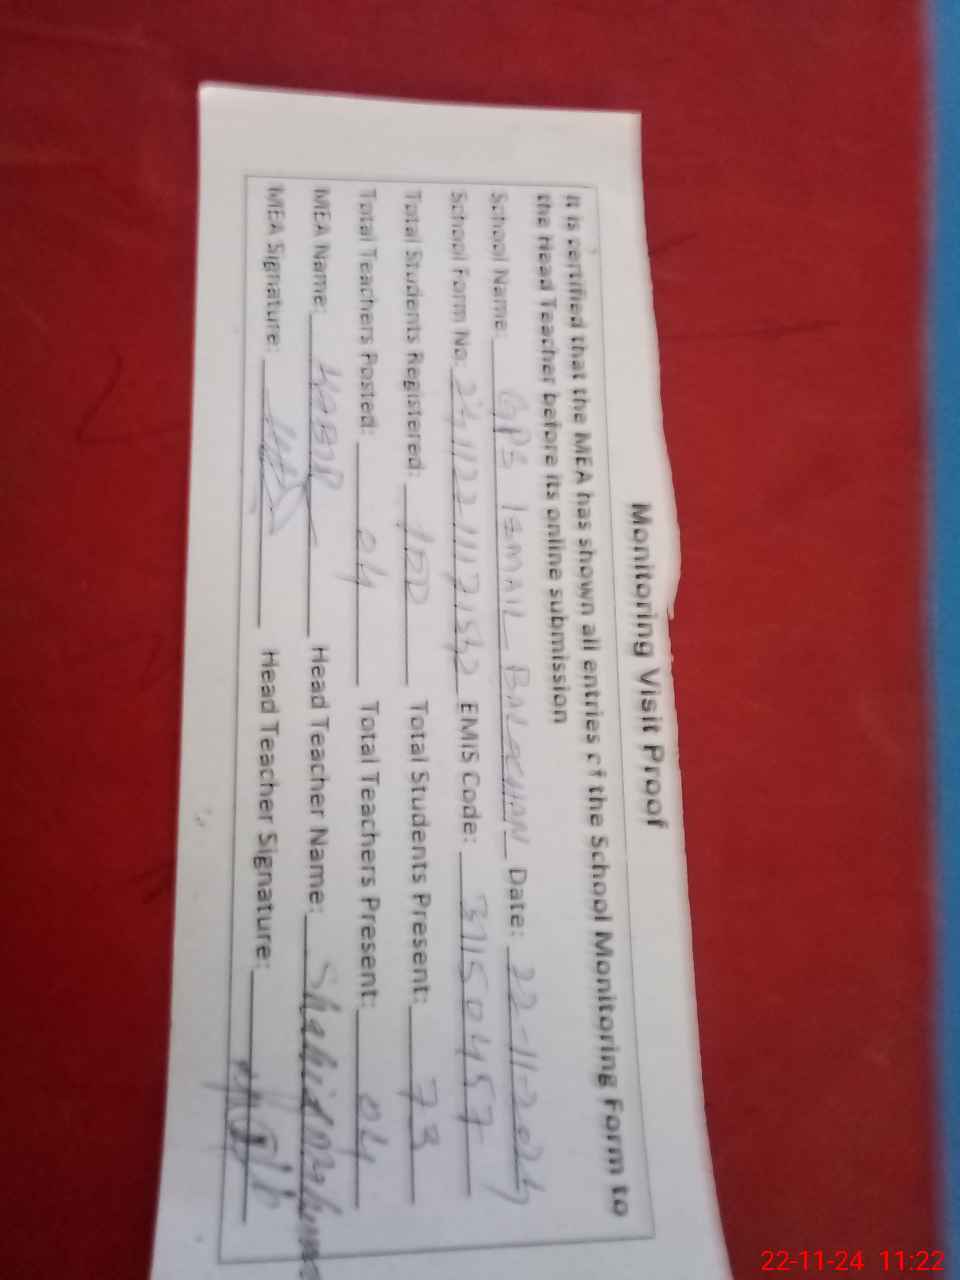 Monitoring Visit Proof
It is certified that the MEA has shown all entries of the School Monitoring Form to
the Head Teacher before its online submission
School Name: GPS ISMAIL BALOCHAN Date: 22-11-2024
School Form No: EMIS Code: 37150457
Total Students Registered: 100 Total Students Present: 73
Total Teachers Posted: 04 Total Teachers Present: 04
MEA Name: KABIR Head Teacher Name:
MEA Signature: Head Teacher Signature:
22-11-24 11:22